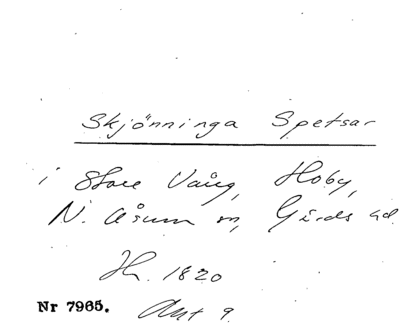 Skjönninga Spetsar
i Store Vång, Hoby,
N. Åsum sn, Gärds hd.
1820
Nr 7965. Akt 9